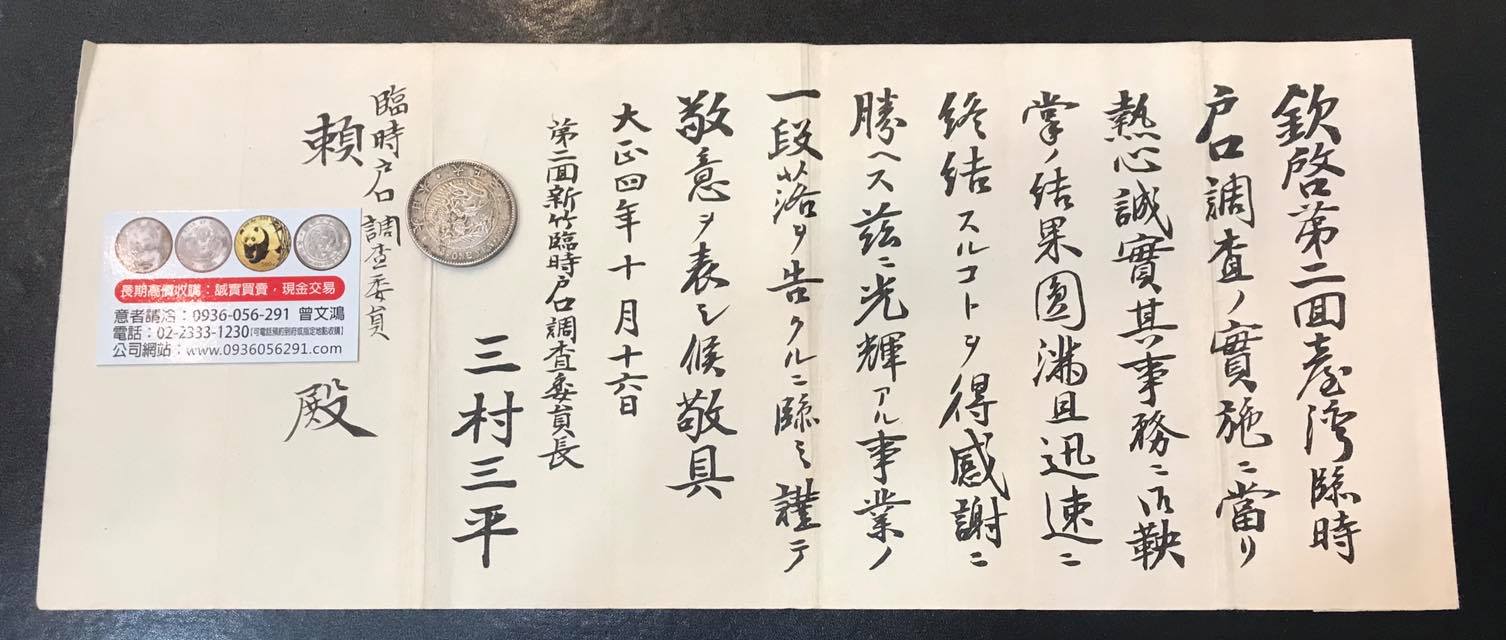 欽啓第二回臺灣臨時
戶口調査ノ實施ニ當リ
熱心誠實其事務ニ御鞅
掌ノ結果圓滿且迅速ニ
終結スルコトヲ得感謝ニ
勝ヘス茲ニ光輝アル事業ノ
一段落ヲ告クルニ臨ミ謹テ
敬意ヲ表シ候敬具
大正四年十月十六日
第二回新竹臨時戶口調査委員長
三村三平
臨時戶口調査委員
賴
殿
長期高價收購：誠實買賣，現金交易
意者請洽：0936-056-291 曾文鴻
電話：02-2333-1230【可電話預約到府或指定地點收購】
公司網站：www.0936056291.com